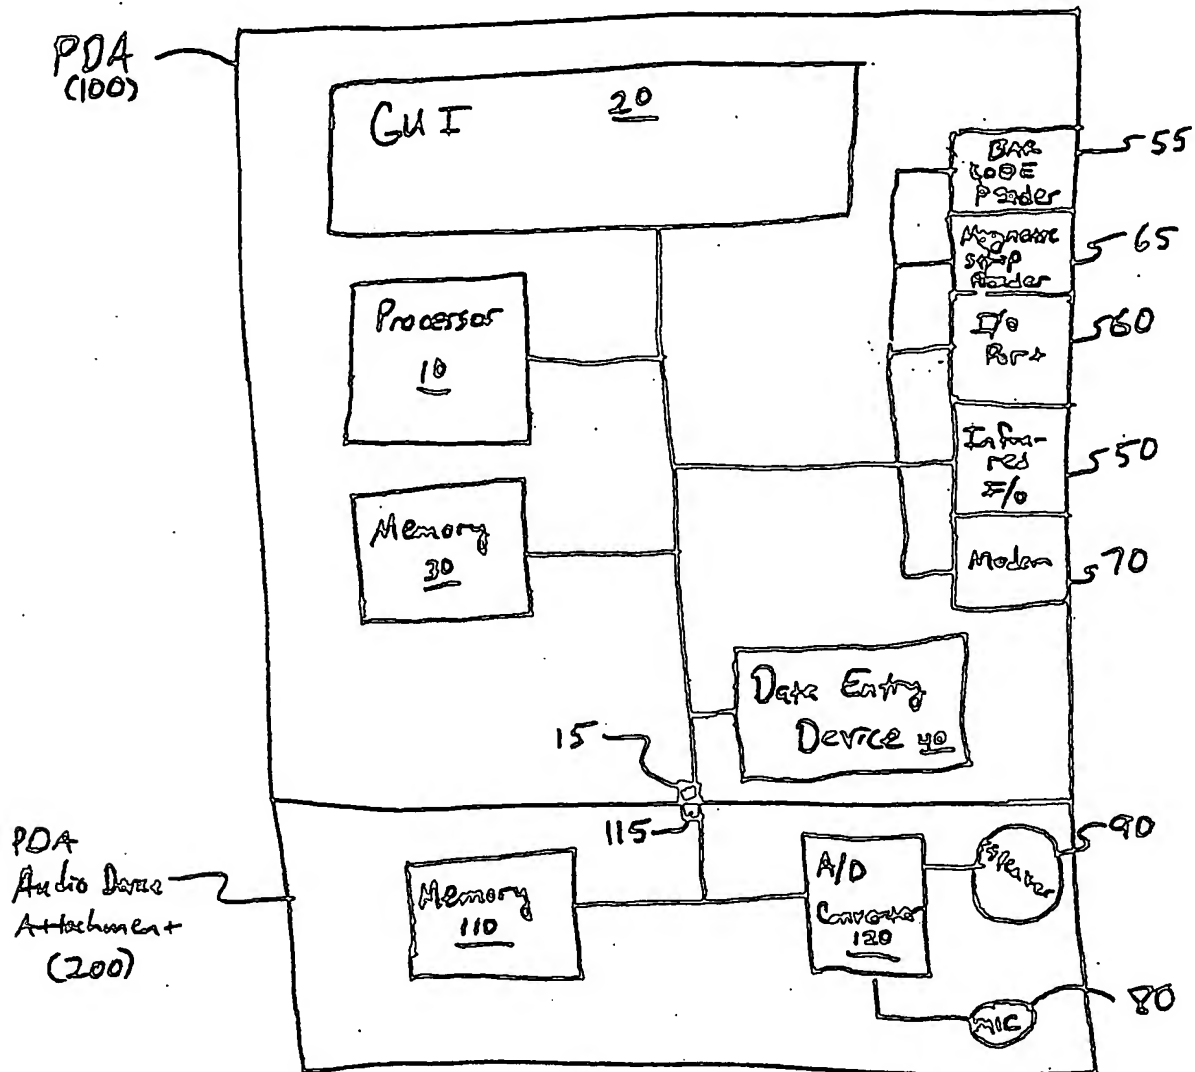 PDA
(100)
GUI 20
BAR
CODE
Reader
55
Magnetic
Strip
Reader
65
Processor
10
I/O
Port
60
Infra-
red
I/O
50
Memory
30
Modem
70
Data Entry
Device 40
15
115
PDA
Audio Device
Attachment
(200)
Memory
110
A/D
Converter
120
Speaker
90
MIC
80